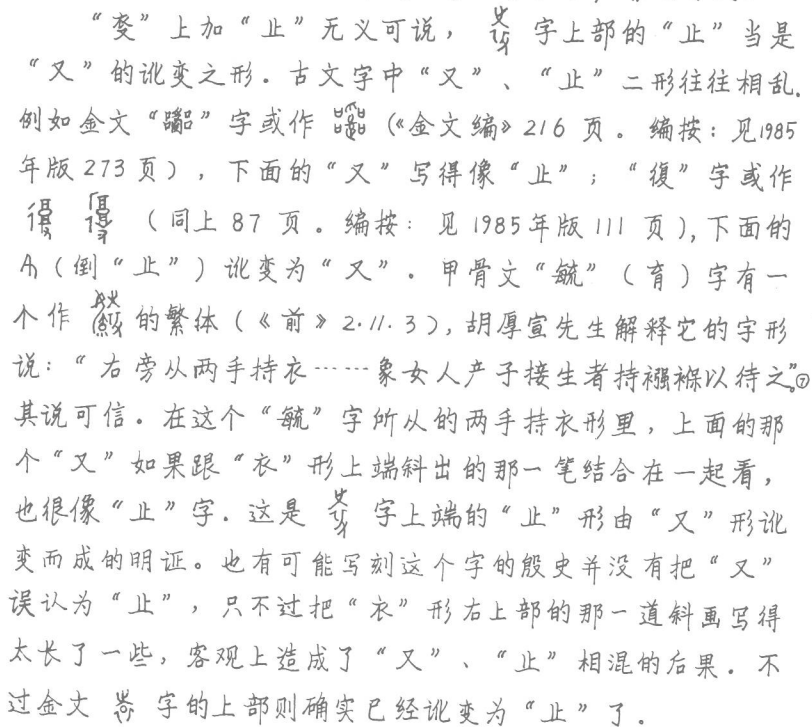 “㚇”上加“止”无义可说， 字上部的“止”当是
“又”的讹变之形。古文字中“又”、“止”二形往往相乱.
例如金文“ ”字或作 （《金文编》216页。编按：见1985
年版273页），下面的“又”写得像“止”；“復”字或作
（同上87页。编按：见1985年版111页），下面的
（倒“止”）讹变为“又”。甲骨文“毓”（育）字有一
个作 的繁体（《前》2·11·3），胡厚宣先生解释它的字形
说：“右旁从两手持衣……象女人产子接生者持襁褓以待之”。⑦
其说可信。在这个“毓”字所从的两手持衣形里，上面的那
个“又”如果跟“衣”形上端斜出的那一笔结合在一起看，
也很像“止”字．这是 字上端的“止”形由“又”形讹
变而成的明证。也有可能写刻这个字的殷史并没有把“又”
误认为“止”，只不过把“衣”形右上部的那一道斜画写得
太长了一些，客观上造成了“又”、“止”相混的后果．不
过金文 字的上部则确实已经讹变为“止”了．